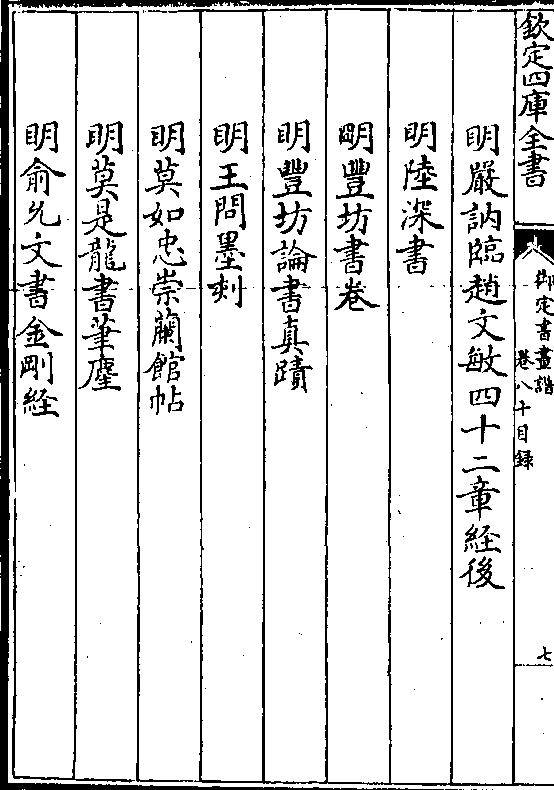 欽定四庫全書
御定書畫譜
卷八十目録
七
明嚴訥臨趙文敏四十二章經後
明陸深書
明豐坊書卷
明豐坊論書真蹟
明王問墨刻
明莫如忠崇蘭館帖
明莫是龍書筆麈
明俞允文書金剛経